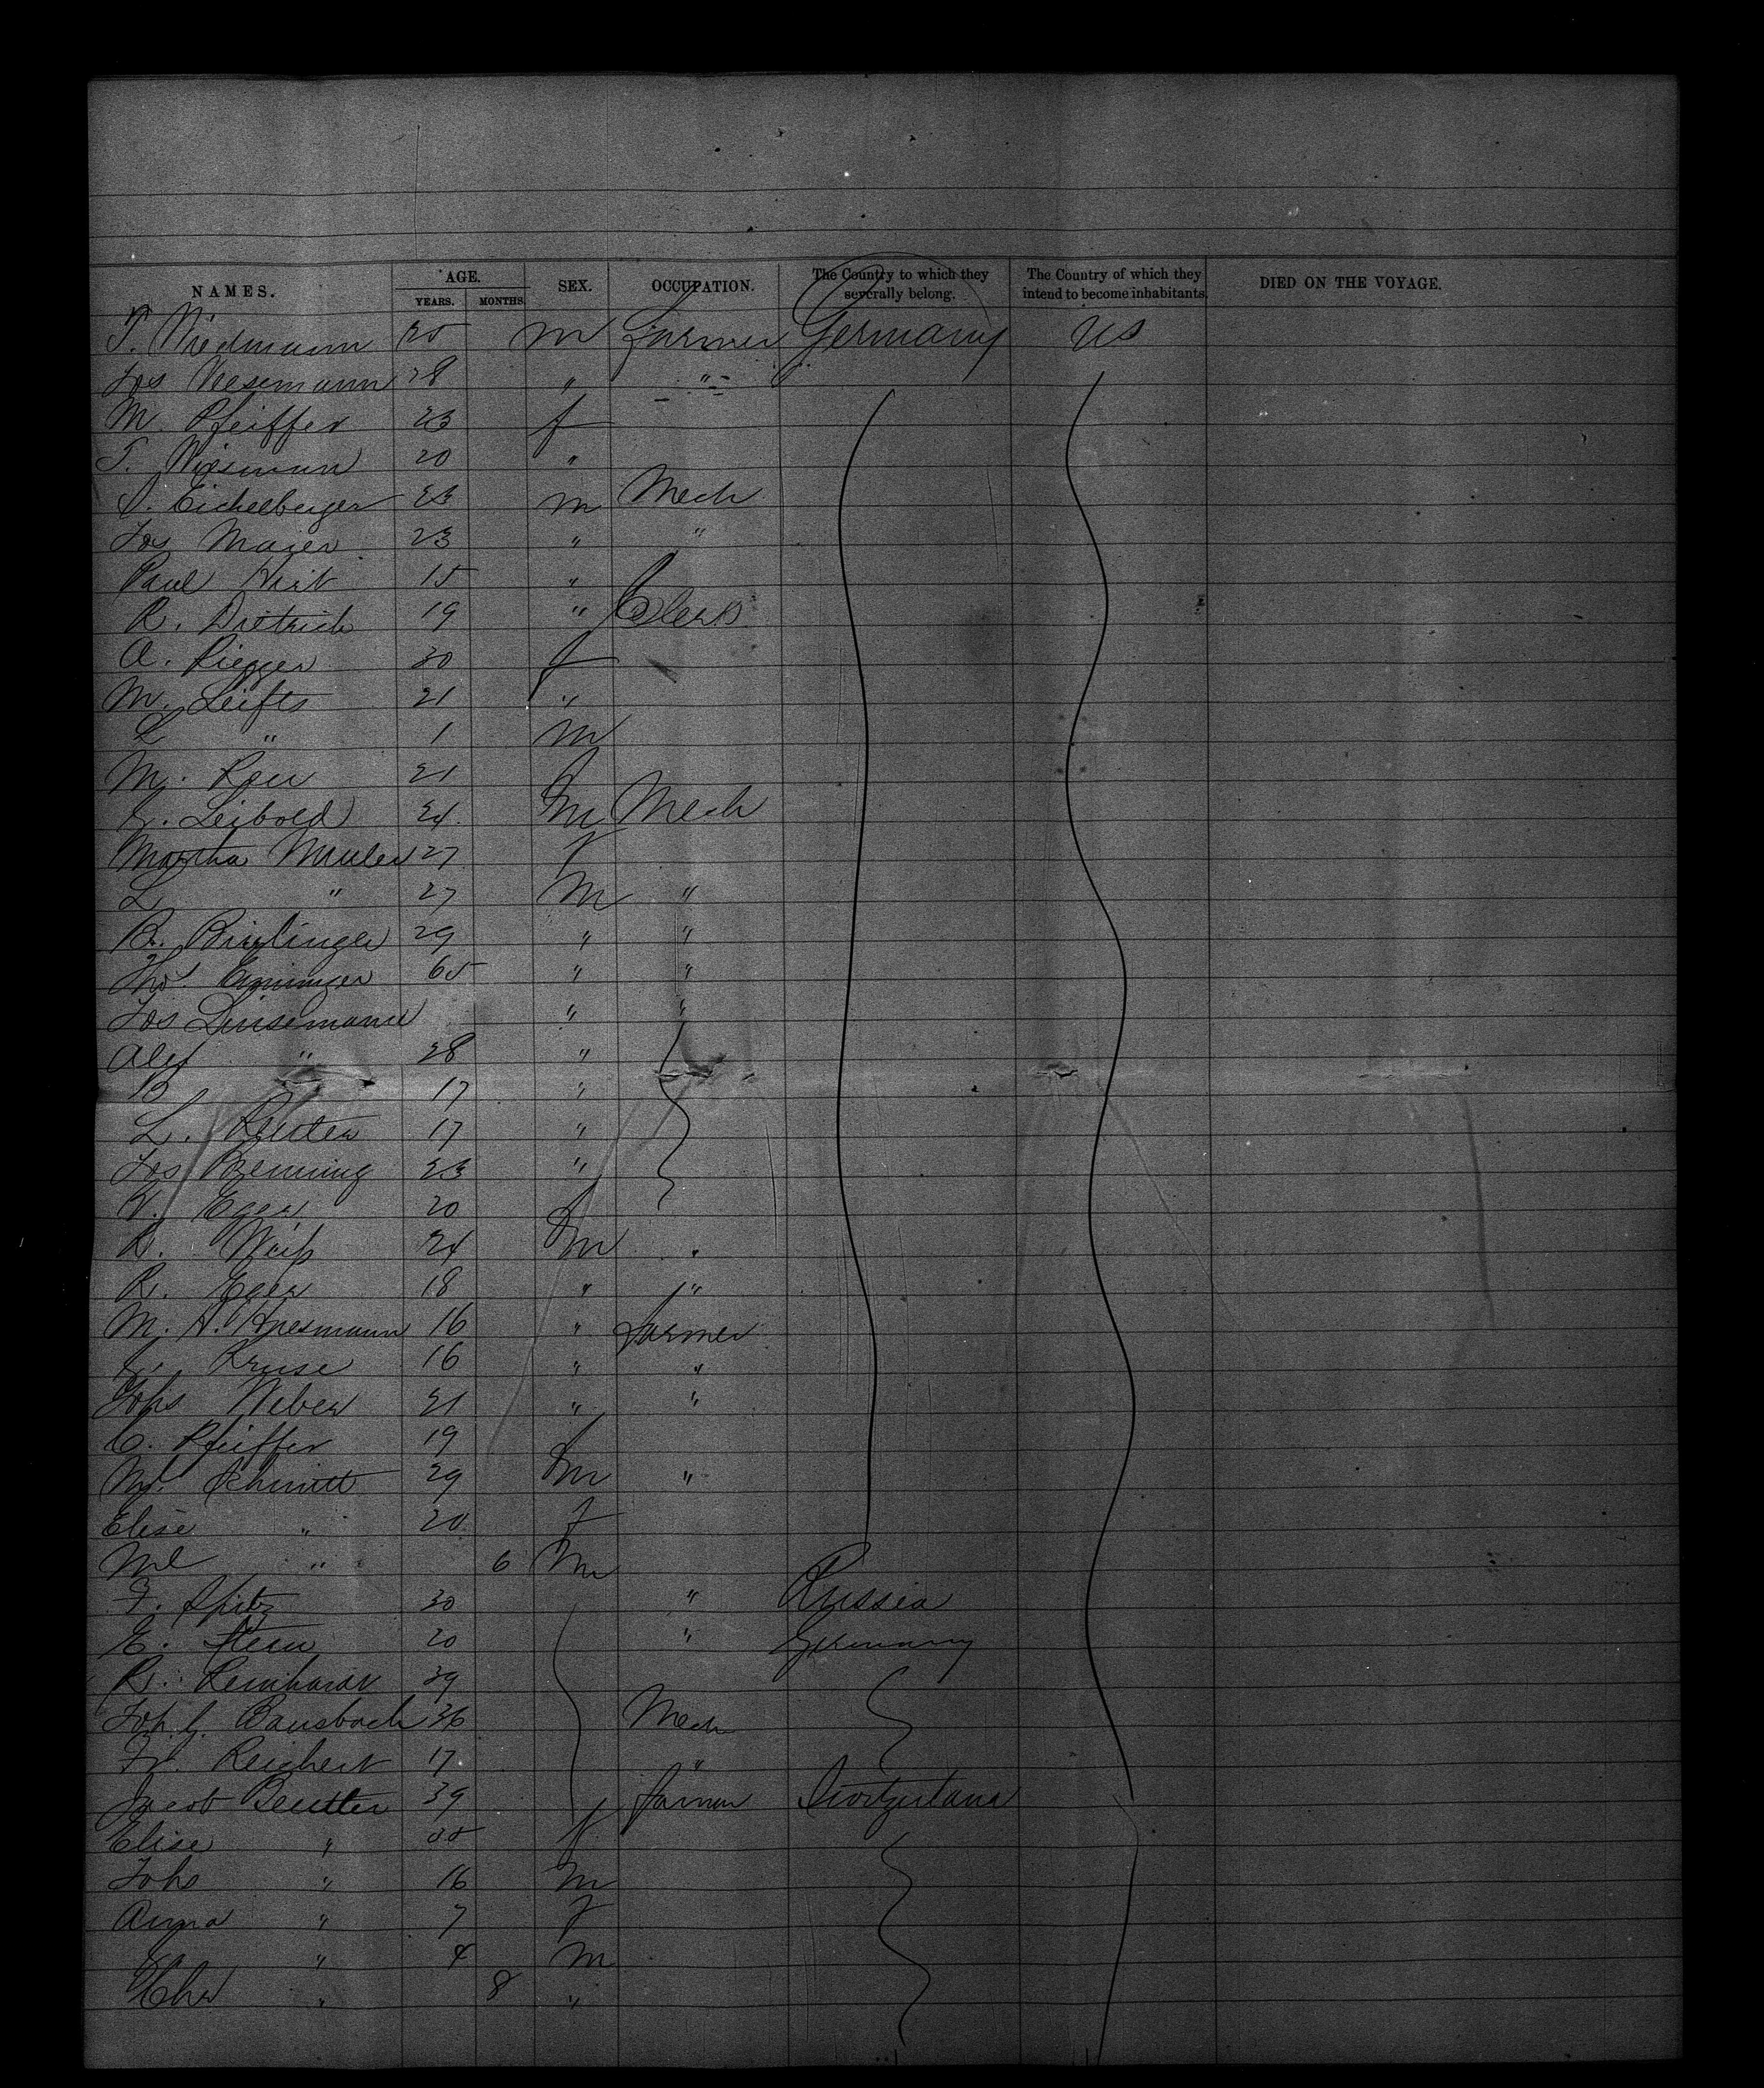 NAMES. AGE. YEARS. MONTHS. SEX. OCCUPATION. The Country to which they severally belong. The Country of which they intend to become inhabitants. DIED ON THE VOYAGE.
T. Wiedmann m Farmer Germany US
Jos Weesemann 28 " "
M. Pfeiffer 23 f
T. Wiesmann 20 "
Eichelberger 23 m Mech
Jos Maier 23 " "
Paul Hirt 15 "
R. Dietrich 19 " Clerk
A. Riegger 30 f
M. Leifts 21 "
L " 1 m
M. Rau 21 f
Leibold 24 m Mech
Martha Muller 27 f
L " 27 M "
B. Birlinger 29 " "
65 " "
Jos Linsemann " "
Alex " 28 "
B 17 "
L. Reuter 17 "
Jos Benning 23 "
Eger 20 f
Weiß 24 m
R. Eger 18 " "
M. 16 " Farmer
Kruse 16 " "
Johs Weber 21 " "
C. Pfeiffer 19 f
Schmitt 29 m "
Elise " 20 f
" 6 m
F. Spitz 30 " Russia
E. Stern 20 " Germany
R. Reinhardt 39
Joh. G. Bausbach 36 Mech
Fr. Reichert 17 "
Jacob Beutler 39 Farmer Switzerland
Elise " f
Johs " 16 m
Anna " 7 f
" 4 m
" 8 "